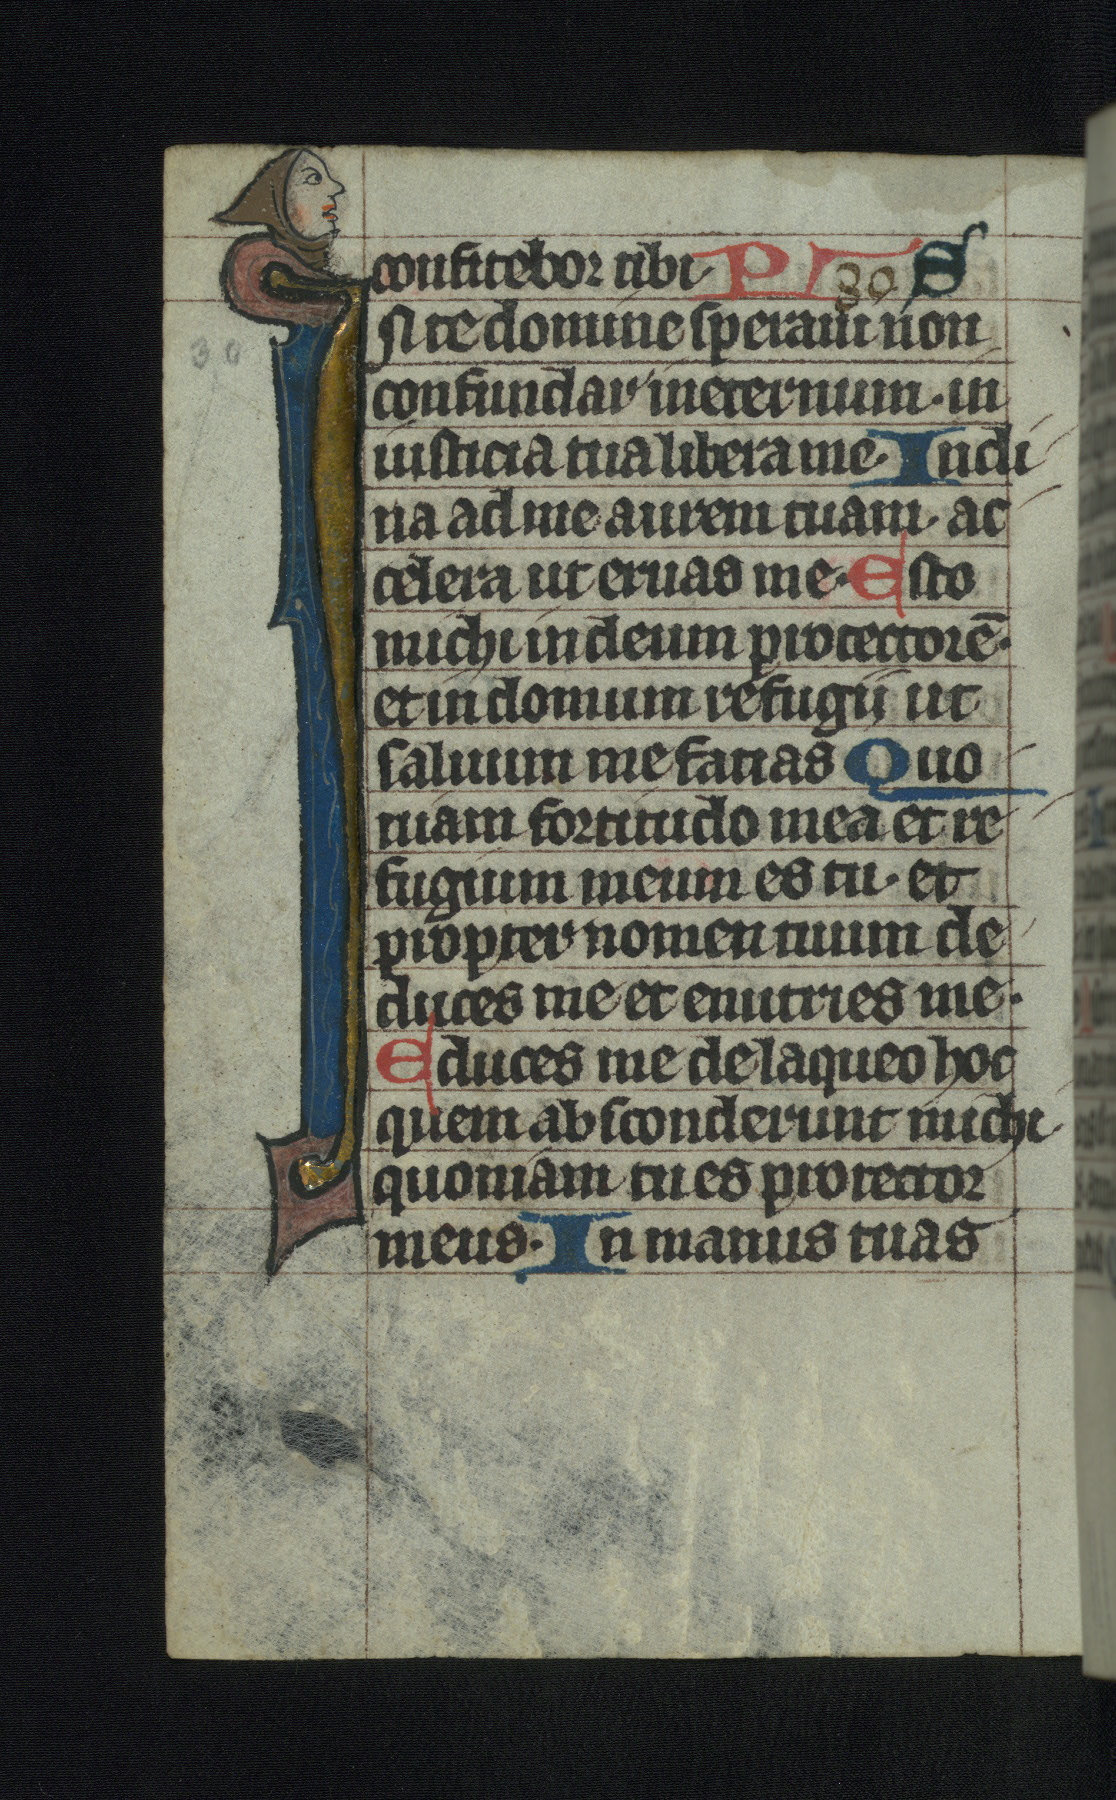 confitebor tibi PS 30
30
In te domine speraui non
confundar ineternum · in
iusticia tua libera me · Incli
na ad me aurem tuam · ac
celera ut eruas me · Esto
michi in deum protectorē ·
et in domum refugij ut
saluum me facias Quo
niam fortitudo mea et re
fugium meum es tu · et
propter nomen tuum de
duces me et enutries me ·
Educes me de laqueo hoc
quem absconderunt michi
quoniam tu es protector
meus · In manus tuas